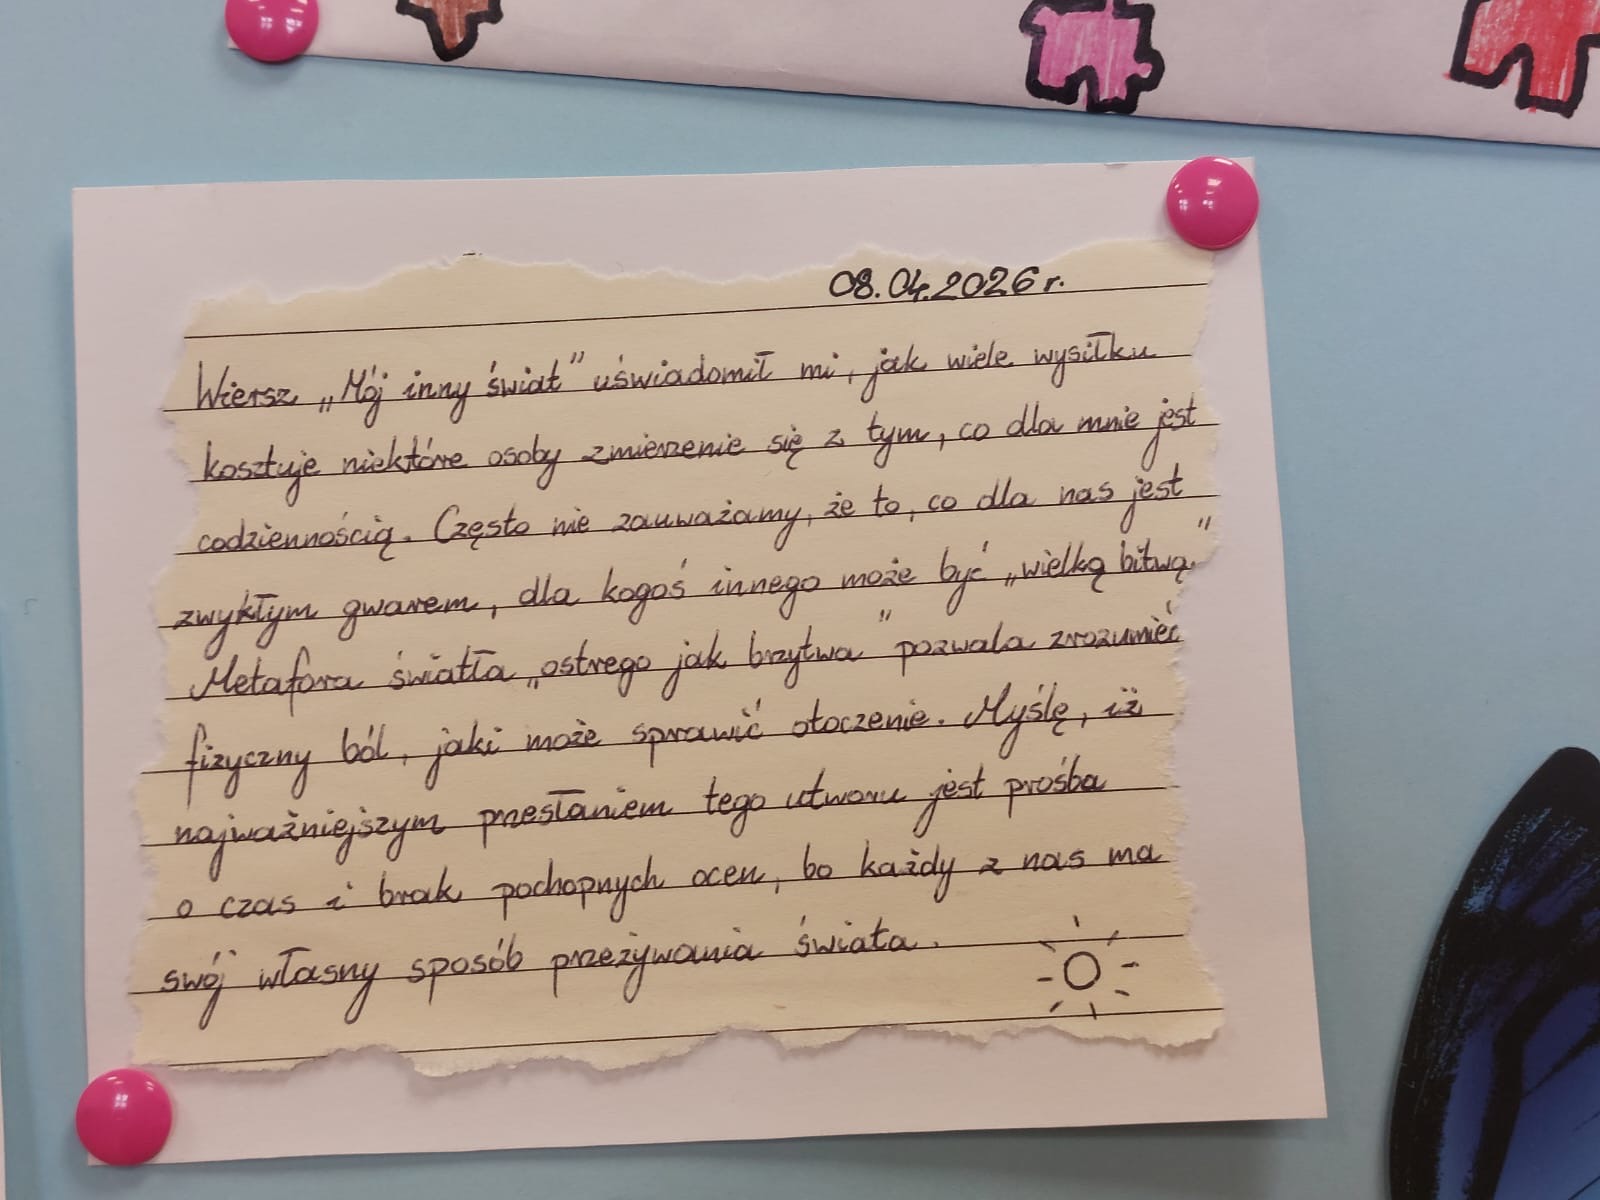 08.04.2026 r.
Wiersz „Mój inny świat” uświadomił mi, jak wiele wysiłku
kosztuje niektóre osoby zmierzenie się z tym, co dla mnie jest
codziennością. Często nie zauważamy, że to, co dla nas jest
zwykłym gwarem, dla kogoś innego może być „wielką bitwą.”
Metafora światła „ostrego jak brzytwa” pozwala zrozumieć
fizyczny ból, jaki może sprawić otoczenie. Myślę, iż
najważniejszym przesłaniem tego utworu jest prośba
o czas i brak pochopnych ocen, bo każdy z nas ma
swój własny sposób przeżywania świata.